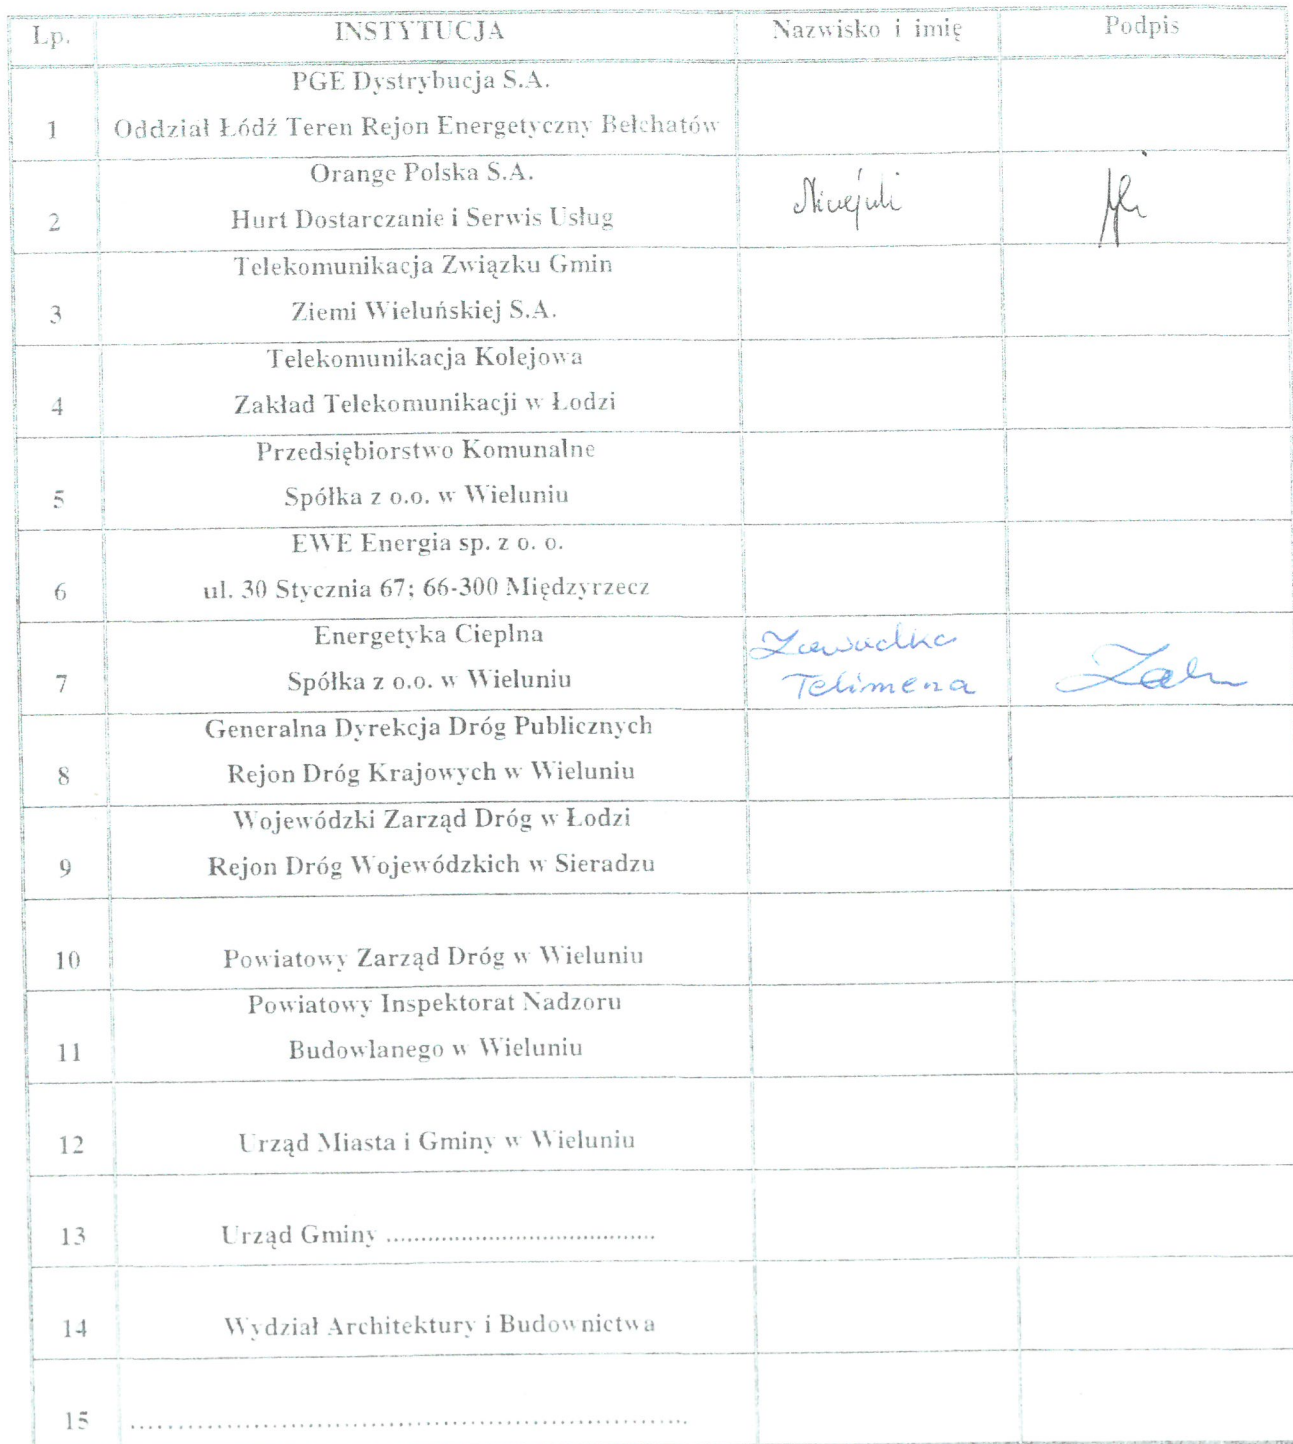 Lp. INSTYTUCJA Nazwisko i imię Podpis
PGE Dystrybucja S.A.
1 Oddział Łódź Teren Rejon Energetyczny Bełchatów
Orange Polska S.A.
2 Hurt Dostarczanie i Serwis Usług
Telekomunikacja Związku Gmin
3 Ziemi Wieluńskiej S.A.
Telekomunikacja Kolejowa
4 Zakład Telekomunikacji w Łodzi
Przedsiębiorstwo Komunalne
5 Spółka z o.o. w Wieluniu
EWE Energia sp. z o. o.
6 ul. 30 Stycznia 67; 66-300 Międzyrzecz
Energetyka Cieplna Zawadka
7 Spółka z o.o. w Wieluniu Telimena
Generalna Dyrekcja Dróg Publicznych
8 Rejon Dróg Krajowych w Wieluniu
Wojewódzki Zarząd Dróg w Łodzi
9 Rejon Dróg Wojewódzkich w Sieradzu
10 Powiatowy Zarząd Dróg w Wieluniu
Powiatowy Inspektorat Nadzoru
11 Budowlanego w Wieluniu
12 Urząd Miasta i Gminy w Wieluniu
13 Urząd Gminy ......................................
14 Wydział Architektury i Budownictwa
15 ..............................................................